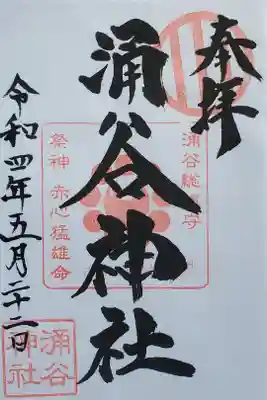 奉拝
涌谷総鎮守
涌谷神社
祭神 赤心猛雄命
令和四年五月二十二日
涌谷
神社